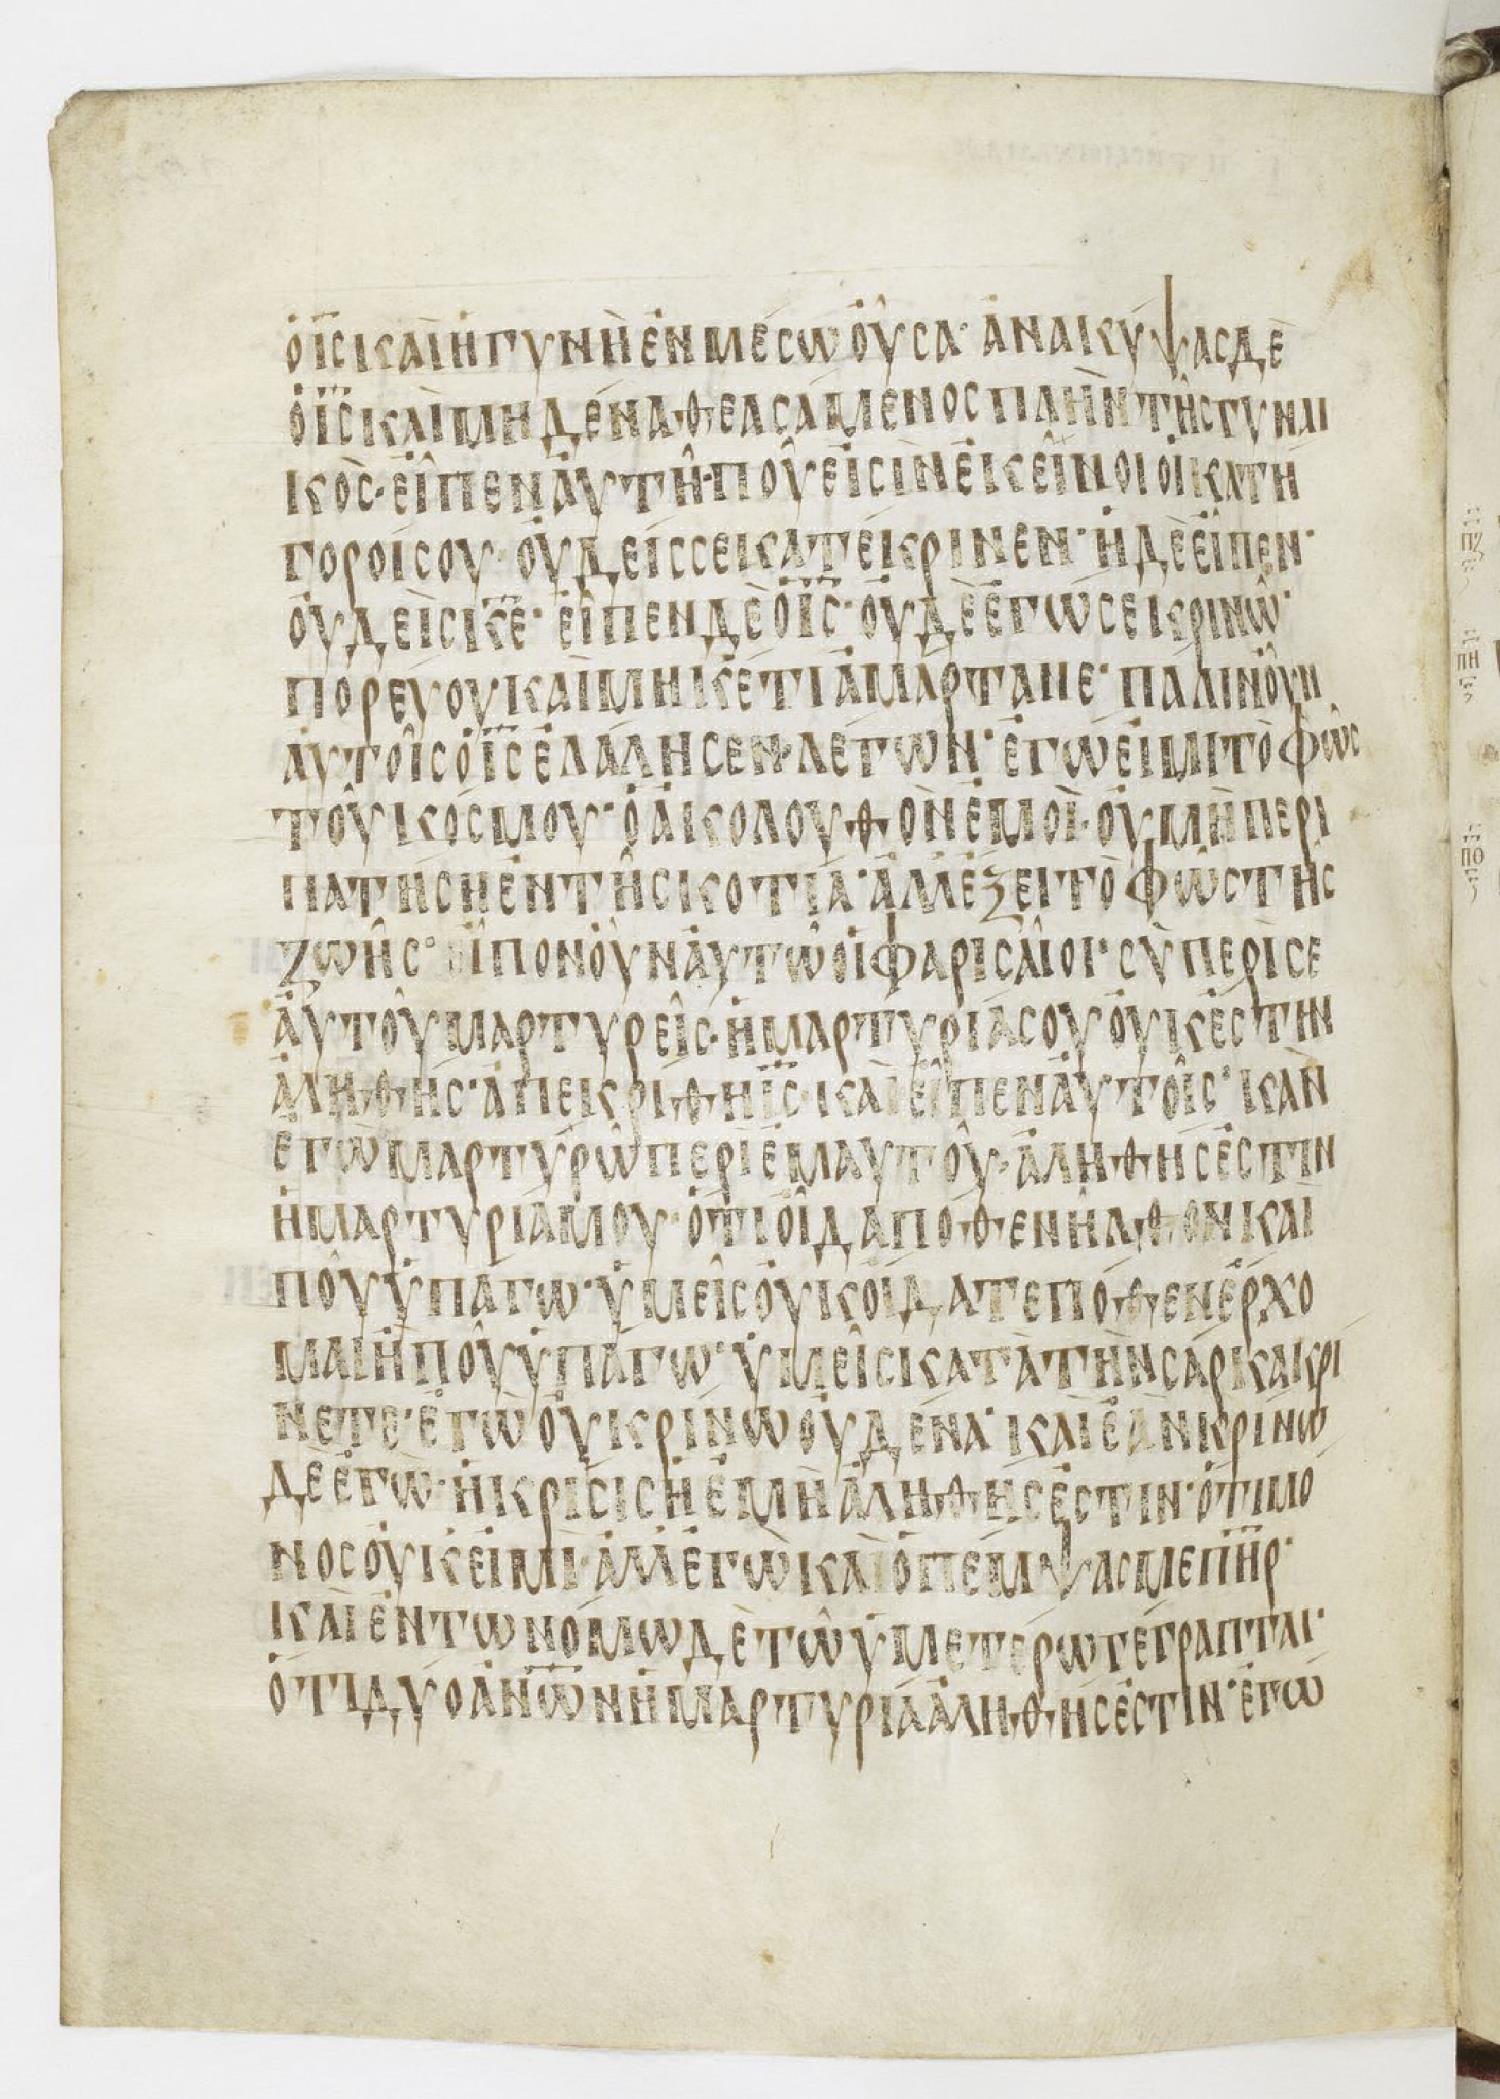 ὁ ΙΣ ΚΑΙ Η ΓΥΝΗ ΕΝ ΜΕΣΩ ΟΥΣΑ· ΑΝΑΚΥΨΑΣ ΔΕ
Ο ΙΣ ΚΑΙ ΜΗΔΕΝΑ ΘΕΑΣΑΜΕΝΟΣ ΠΛΗΝ ΤΗΣ ΓΥΝΑΙ
ΚΟΣ· ΕΙΠΕΝ ΑΥΤΗ· ΠΟΥ ΕΙΣΙΝ ΕΚΕΙΝΟΙ ΟΙ ΚΑΤΗ
ΓΟΡΟΙ ΣΟΥ· ΟΥΔΕΙΣ ΣΕ ΚΑΤΕΚΡΙΝΕΝ· Η ΔΕ ΕΙΠΕΝ·
ΟΥΔΕΙΣ ΚΕ· ΕΙΠΕΝ ΔΕ Ο ΙΣ· ΟΥΔΕ ΕΓΩ ΣΕ ΚΡΙΝΩ·
ΠΟΡΕΥΟΥ ΚΑΙ ΜΗΚΕΤΙ ΑΜΑΡΤΑΝΕ· ΠΑΛΙΝ ΟΥΝ
ΑΥΤΟΙΣ Ο ΙΣ ΕΛΑΛΗΣΕΝ· ΛΕΓΩΝ· ΕΓΩ ΕΙΜΙ ΤΟ ΦΩΣ
ΤΟΥ ΚΟΣΜΟΥ· Ο ΑΚΟΛΟΥΘΟΝ ΕΜΟΙ· ΟΥ ΜΗ ΠΕΡΙ
ΠΑΤΗΣΗ ΕΝ ΤΗ ΣΚΟΤΙΑ· ΑΛΛ ΕΞΕΙ ΤΟ ΦΩΣ ΤΗΣ
ΖΩΗΣ· ΕΙΠΟΝ ΟΥΝ ΑΥΤΩ ΟΙ ΦΑΡΙΣΑΙΟΙ· ΣΥ ΠΕΡΙ ΣΕ
ΑΥΤΟΥ ΜΑΡΤΥΡΕΙΣ· Η ΜΑΡΤΥΡΙΑ ΣΟΥ ΟΥΚ ΕΣΤΙΝ
ΑΛΗΘΗΣ· ΑΠΕΚΡΙΘΗ ΙΣ· ΚΑΙ ΕΙΠΕΝ ΑΥΤΟΙΣ· ΚΑΝ
ΕΓΩ ΜΑΡΤΥΡΩ ΠΕΡΙ ΕΜΑΥΤΟΥ· ΑΛΗΘΗΣ ΕΣΤΙΝ
Η ΜΑΡΤΥΡΙΑ ΜΟΥ· ΟΤΙ ΟΙΔΑ ΠΟΘΕΝ ΗΛΘΟΝ ΚΑΙ
ΠΟΥ ΥΠΑΓΩ· ΥΜΕΙΣ ΟΥΚ ΟΙΔΑΤΕ ΠΟΘΕΝ ΕΡΧΟ
ΜΑΙ Η ΠΟΥ ΥΠΑΓΩ· ΥΜΕΙΣ ΚΑΤΑ ΤΗΝ ΣΑΡΚΑ ΚΡΙ
ΝΕΤΕ· ΕΓΩ ΟΥ ΚΡΙΝΩ ΟΥΔΕΝΑ· ΚΑΙ ΕΑΝ ΚΡΙΝΩ
ΔΕ ΕΓΩ· Η ΚΡΙΣΙΣ Η ΕΜΗ ΑΛΗΘΗΣ ΕΣΤΙΝ· ΟΤΙ ΜΟ
ΝΟΣ ΟΥΚ ΕΙΜΙ· ΑΛΛ ΕΓΩ ΚΑΙ Ο ΠΕΜΨΑΣ ΜΕ ΠΗΡ·
ΚΑΙ ΕΝ ΤΩ ΝΟΜΩ ΔΕ ΤΩ ΥΜΕΤΕΡΩ ΓΕΓΡΑΠΤΑΙ·
ΟΤΙ ΔΥΟ ΑΝΩΝ Η ΜΑΡΤΥΡΙΑ ΑΛΗΘΗΣ ΕΣΤΙΝ· ΕΓΩ